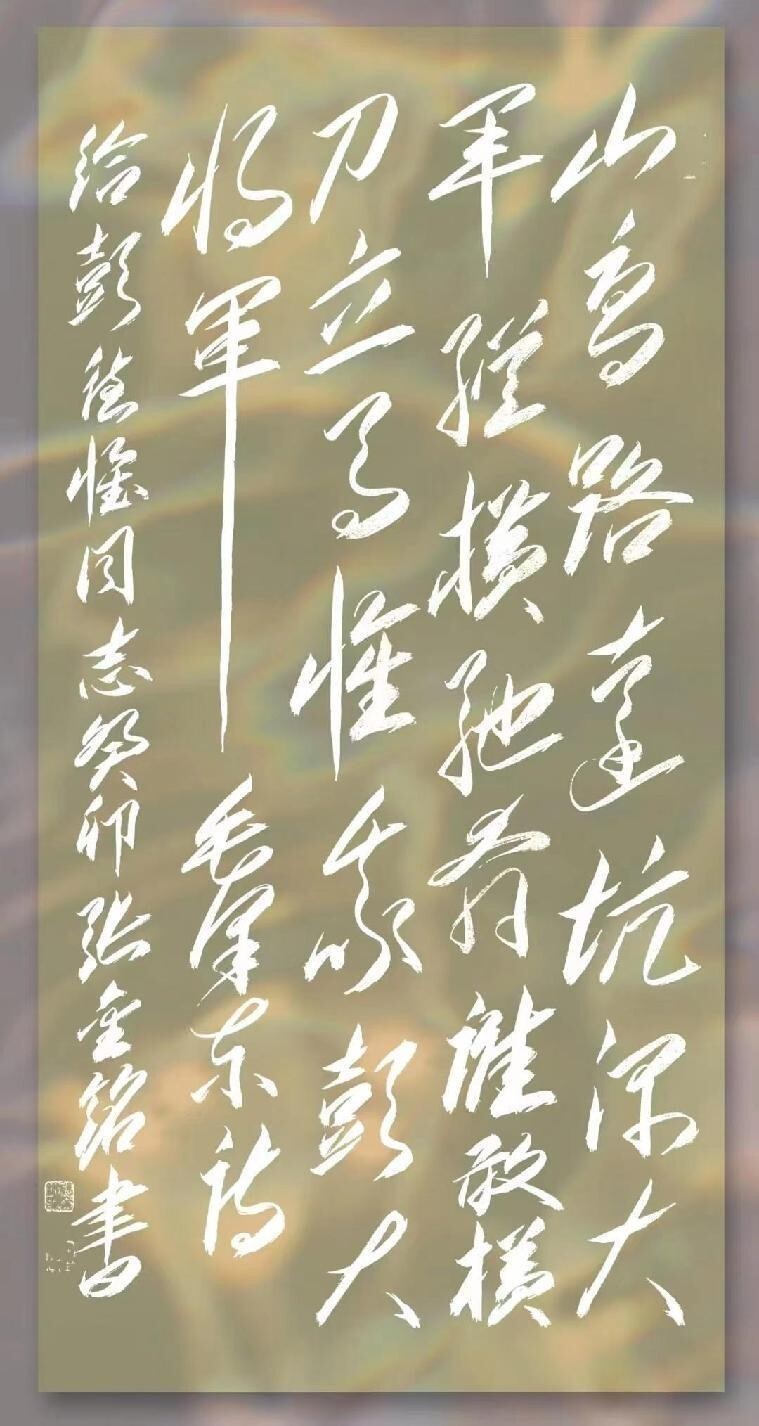 山高路远坑深大
军纵横驰奔谁敢横
刀立马惟我彭大
将军 毛泽东诗
给彭德怀同志癸卯张金铭书